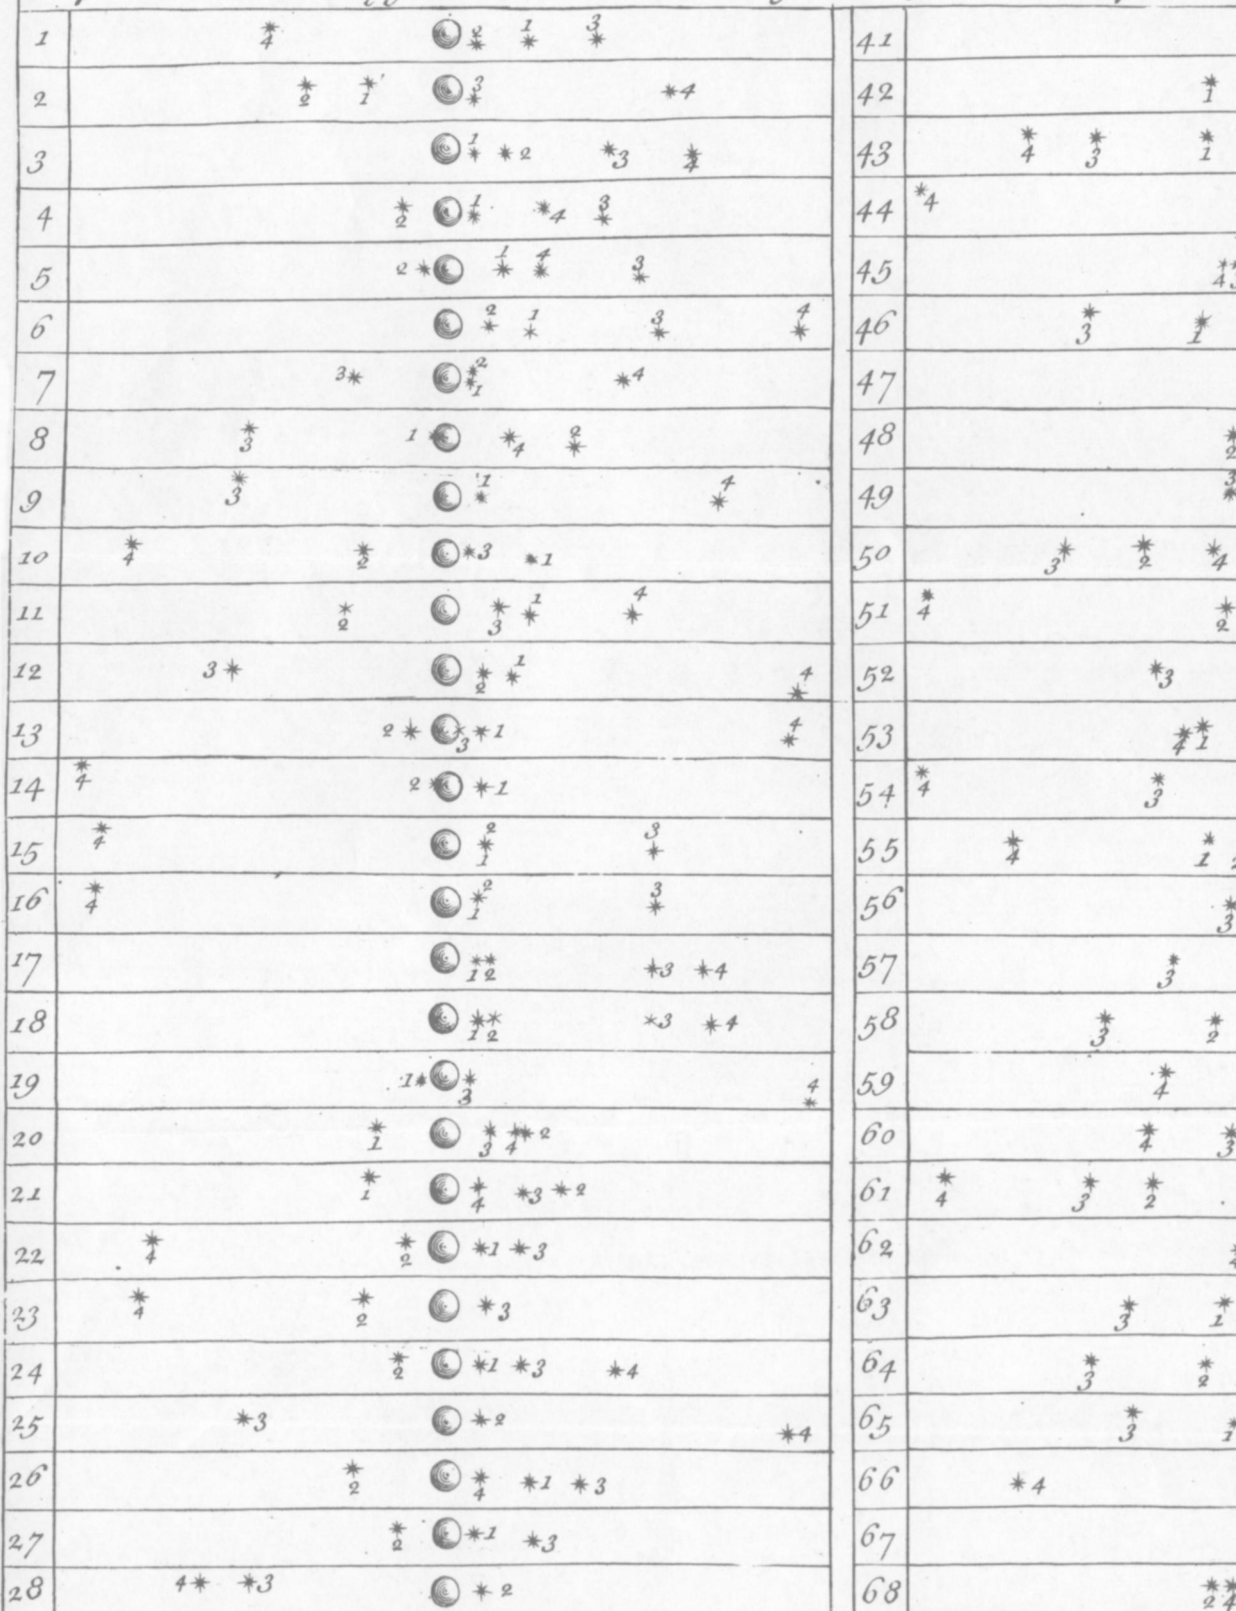 1 4 2 1 3
2 2 1 3 4
3 1 2 3 4
4 2 1 4 3
5 2 1 4 3
6 2 1 3 4
7 3 2 1 4
8 3 1 4 2
9 3 1 4
10 4 2 3 1
11 2 3 1 4
12 3 2 1 4
13 2 3 1 4
14 4 2 1
15 4 2 1 3
16 4 2 1 3
17 1 2 3 4
18 1 2 3 4
19 1 3 4
20 1 3 4 2
21 1 4 3 2
22 4 2 1 3
23 4 2 3
24 2 1 3 4
25 3 2 4
26 2 4 1 3
27 2 1 3
28 4 3 2
41
42 1
43 4 3 1
44 4
45 4
46 3 1
47
48 2
49 3
50 3 2 4
51 4 2
52 3
53 4 1
54 4 3
55 4 1
56 3
57 3
58 3 2
59 4
60 4 3
61 4 3 2
62
63 3 1
64 3 2
65 3 1
66 4
67
68 2 4